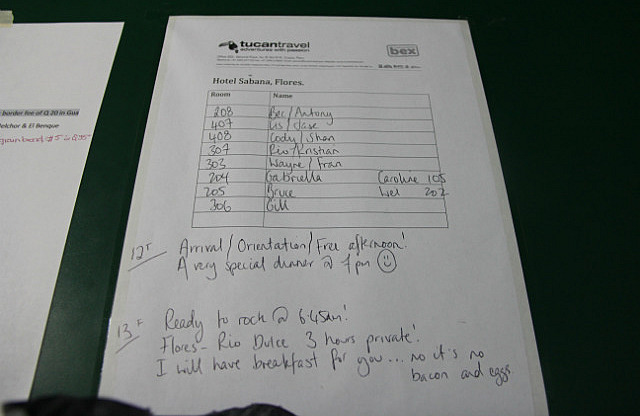 border fee of Q 20 in Gua
elchor & El Benque
tucantravel
adventures with passion
bex
Hotel Sabana, Flores.
Room Name
208 Bec/Antony
407 Lis/Jase
408 Cody/Shan
307 Rio/Kristian
303 Wayne/Fran
204 Gabriella Caroline 105
205 Bruce Wei 202
306 Gill
12т Arrival/Orientation/Free afternoon!
A very special dinner @ 7pm
13т Ready to rock @ 6.45am!
Flores - Rio Dulce 3 hours private!
I will have breakfast for you... no it's no
bacon and eggs.